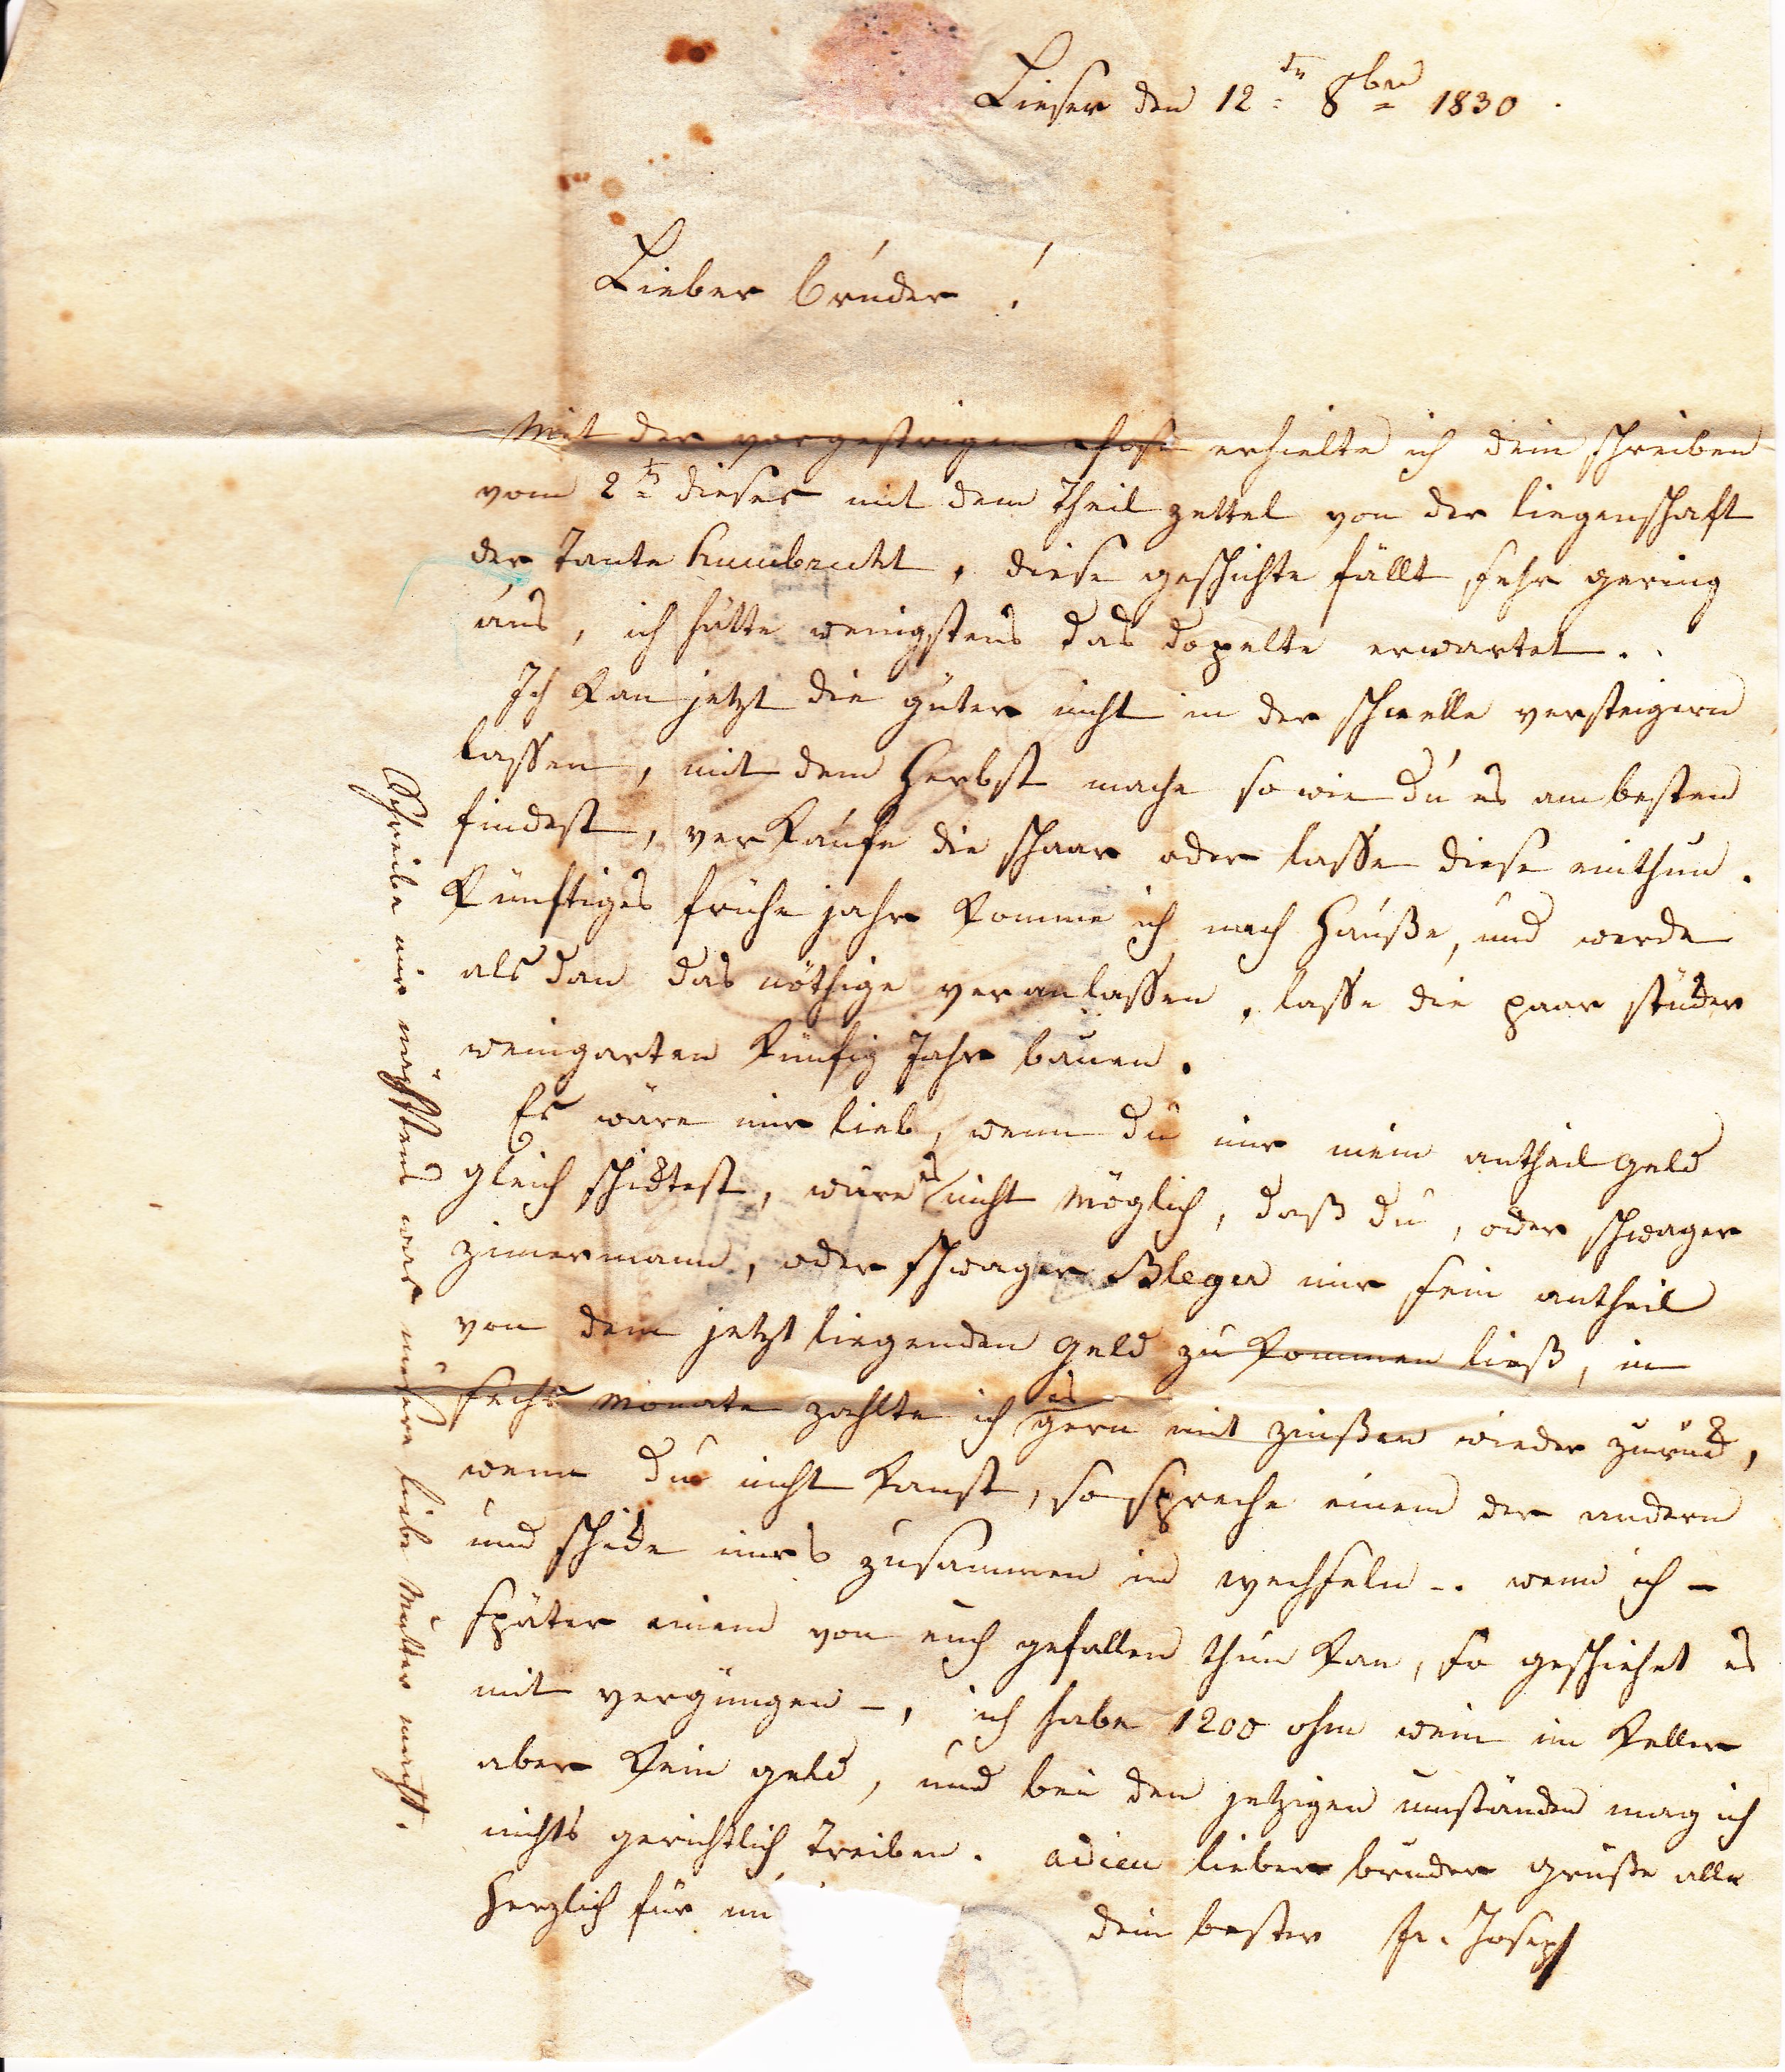 Lieser den 12ten 8ber 1830.
Lieber bruder!
Mit der vorgestrigen Post erhielte ich dein schreiben
vom 2tn dieses mit dem Theil zettel von der liegenschaft
der Tante, diese geschichte fällt sehr gering
aus, ich hätte wenigstens das dopelte erwartet.
Ich kan jetzt die güter nicht in der schnelle versteigern
lassen, mit dem Herbst mache so wie du es am besten
findest, verkaufe die schaar oder lasse diese einthun.
künftiges frühe jahr komme ich nach Hauße, und werde
als dan das nöthige veranlassen, lasse die paar stücker
weingarten künfig Jahr bauen.
Es wäre mir lieb, wenn du mir mein antheil geld
gleich schicktest, wäre es nicht möglich, daß du, oder schwager
zimermann, oder schwager Bleger mir sein antheil
von dem jetzt liegenden geld zu kommen ließ, in
sechs Monate zahlte ich es gern mit zinßen wieder zurück,
wenn du nicht kanst, so spreche einem der andern
und schicke mirs zusammen in wechseln -. wenn ich -
später einem von euch gefallen thun kan, so geschiehet es
mit vergüngen -, ich habe 1200 ohm wein im keller
aber kein geld, und bei den jetzigen umständen mag ich
nichts gerichtlich Treiben. adieu lieber bruder grüße alle
Herzlich für mi
dein bester Fr. Joseph
Schreibe mir nächstens was unsere liebe Mutter macht.